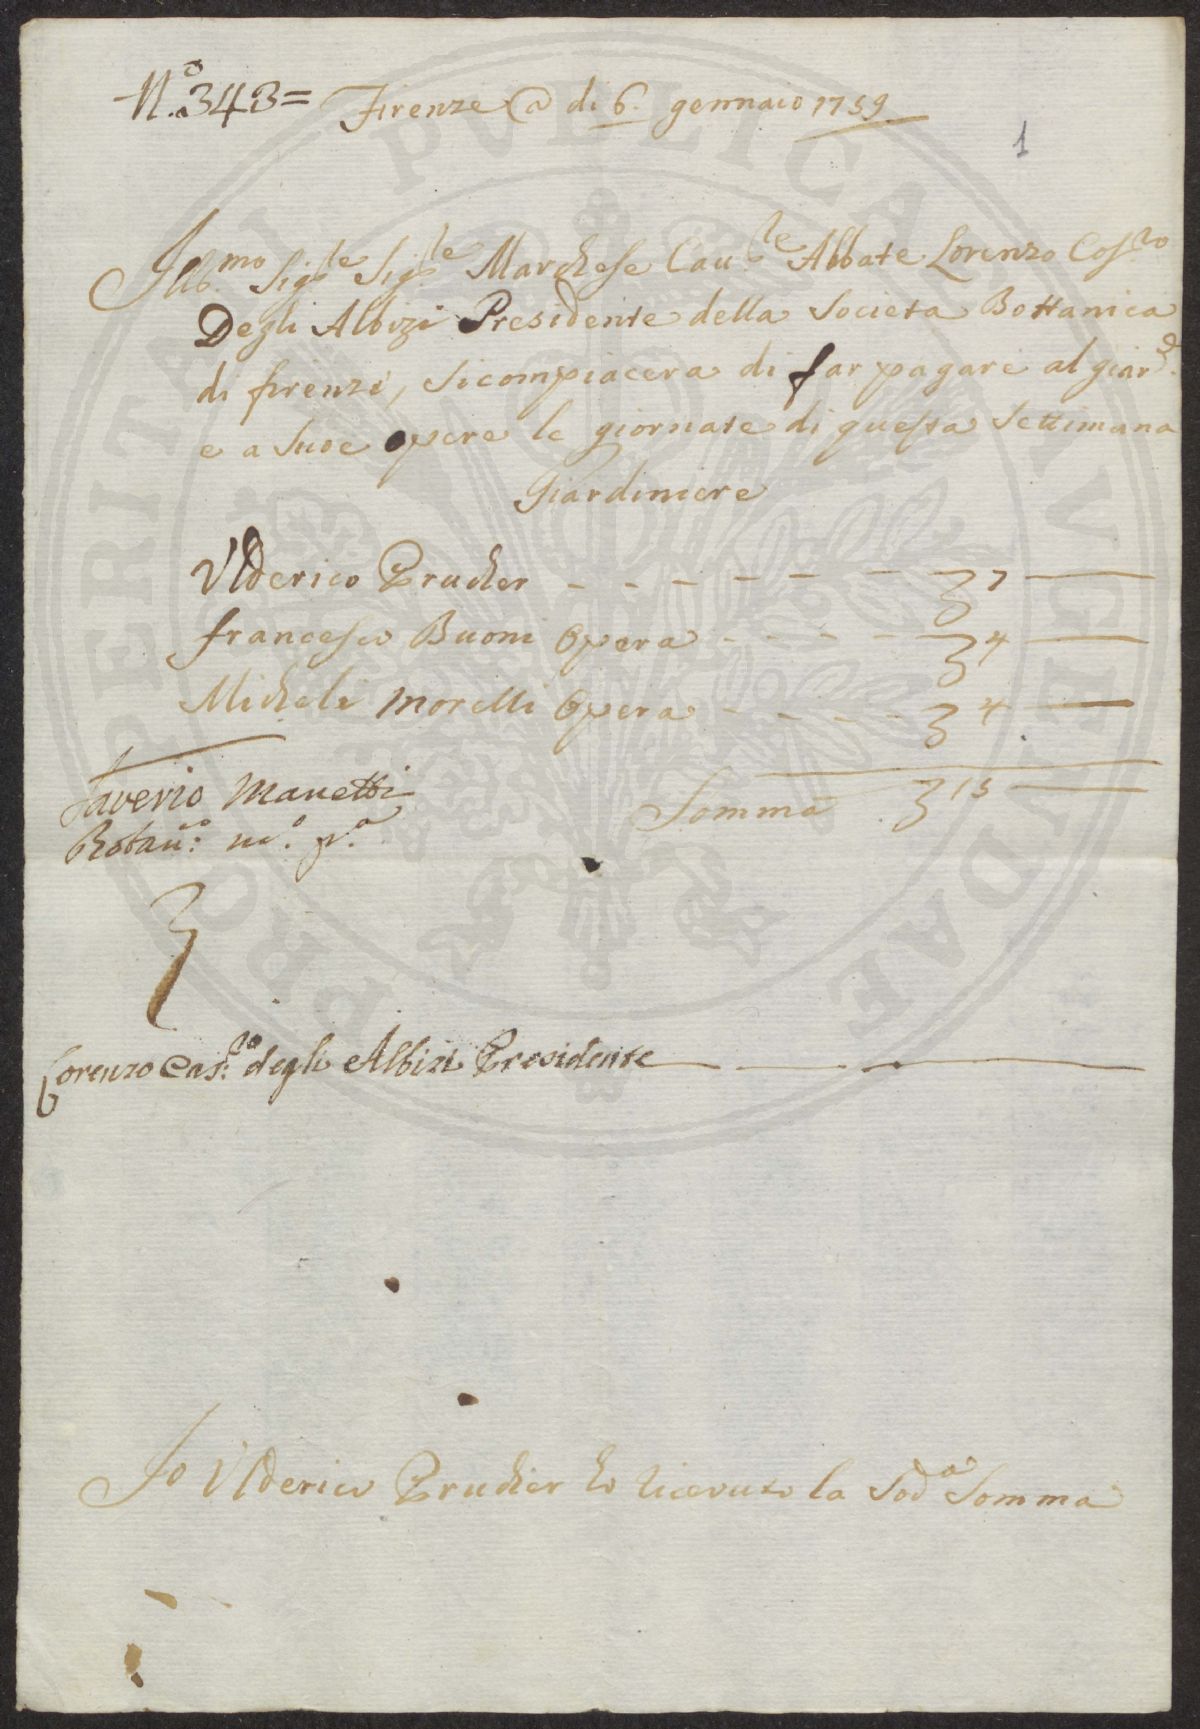 N.o 343=
Firenze @ di 6. gennaio 1759
1
Ill.mo Sig.re Sig.re Marchese Cau.le Abbate Lorenzo Cos.to
Degli Albizi Presidente della Societa Bottanica
di firenze, si compiacera di far pagare al giar.e
e a Sue opere le giornate di questa Settimana
Giardiniere
Vlderico Prucher 7
francesco Buoni Opera 4
Michele Morelli Opera 4
Somma 15
Saverio Manetti
Botan.co m.o p.a
Lorenzo Cas.to degli Albizi Presidente
Io Vlderico Prucher ho riceuuto la Sod.a Somma
PERITAE PVBLICAE AVGENDAE